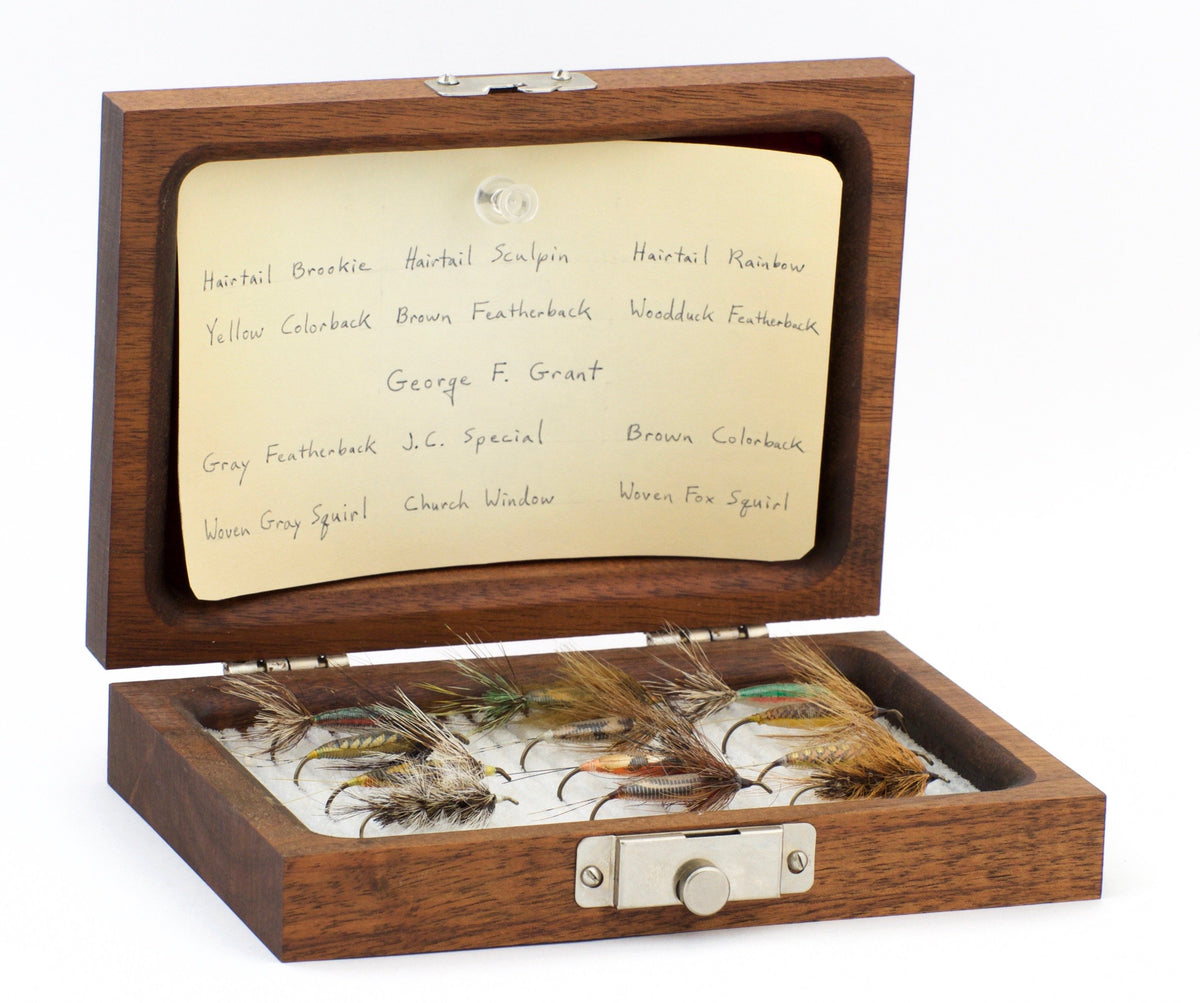 Hairtail Brookie Hairtail Sculpin Hairtail Rainbow
Yellow Colorback Brown Featherback Woodduck Featherback
George F. Grant
Gray Featherback J.C. Special Brown Colorback
Woven Gray Squirl Church Window Woven Fox Squirl